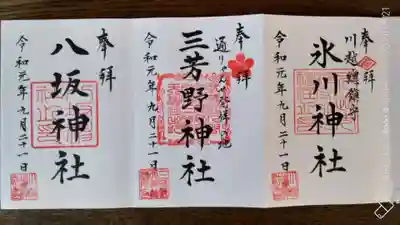 奉拜
川越總鎮守
氷川神社
令和元年九月二十一日
奉拜
通りゃんせ発祥の地
三芳野神社
令和元年九月二十一日
奉拜
八坂神社
令和元年九月二十一日